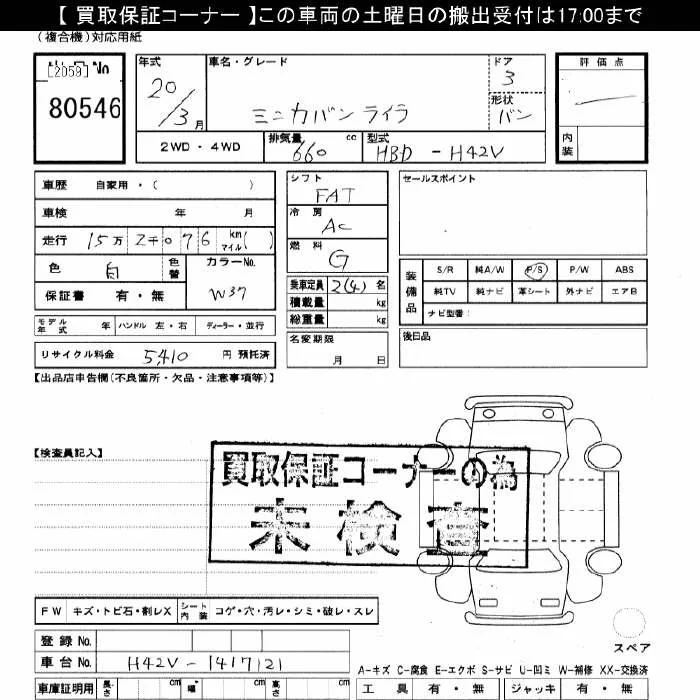 【 買取保証コーナー 】この車両の土曜日の搬出受付は17:00まで
(複合機)対応用紙
[2059] No
80546
年式
20/3月
車名・グレード
ミニカバン ライラ
ドア
3
形状
バン
評 価 点
内装
2WD ・ 4WD
排気量 660 cc
型式 HBD - H42V
車歴 自家用 ・ ( )
車検 年 月
走行 15万 2千 0 7 6 km マイル ( )
色 白 色替
カラーNo.
W37
保証書 有 ・ 無
モデル年式 年 ハンドル 左 ・ 右 ディーラー ・ 並行
リサイクル料金 5,410 円 預託済
シフト
FAT
冷房
AC
燃料
G
乗車定員 2(4) 名
積載量 kg
総重量 kg
名変期限
月 日
セールスポイント
装備品
S/R 純A/W P/S P/W ABS
純TV 純ナビ 革シート 外ナビ エアB
ナビ型番:
後日品
【出品店申告欄(不良箇所・欠品・注意事項等)】
【検査員記入】
買取保証コーナーの為
未検査
FW キズ・トビ石・割レX シート内装 コゲ・穴・汚レ・シミ・破レ・スレ
スペア
登録 No.
車台 No. H42V - 1417121
A-キズ C-腐食 E-エクボ S-サビ U-凹ミ W-補修 XX-交換済
車庫証明用 長さ cm 幅 cm 高さ cm
工具 有 ・ 無 ジャッキ 有 ・ 無